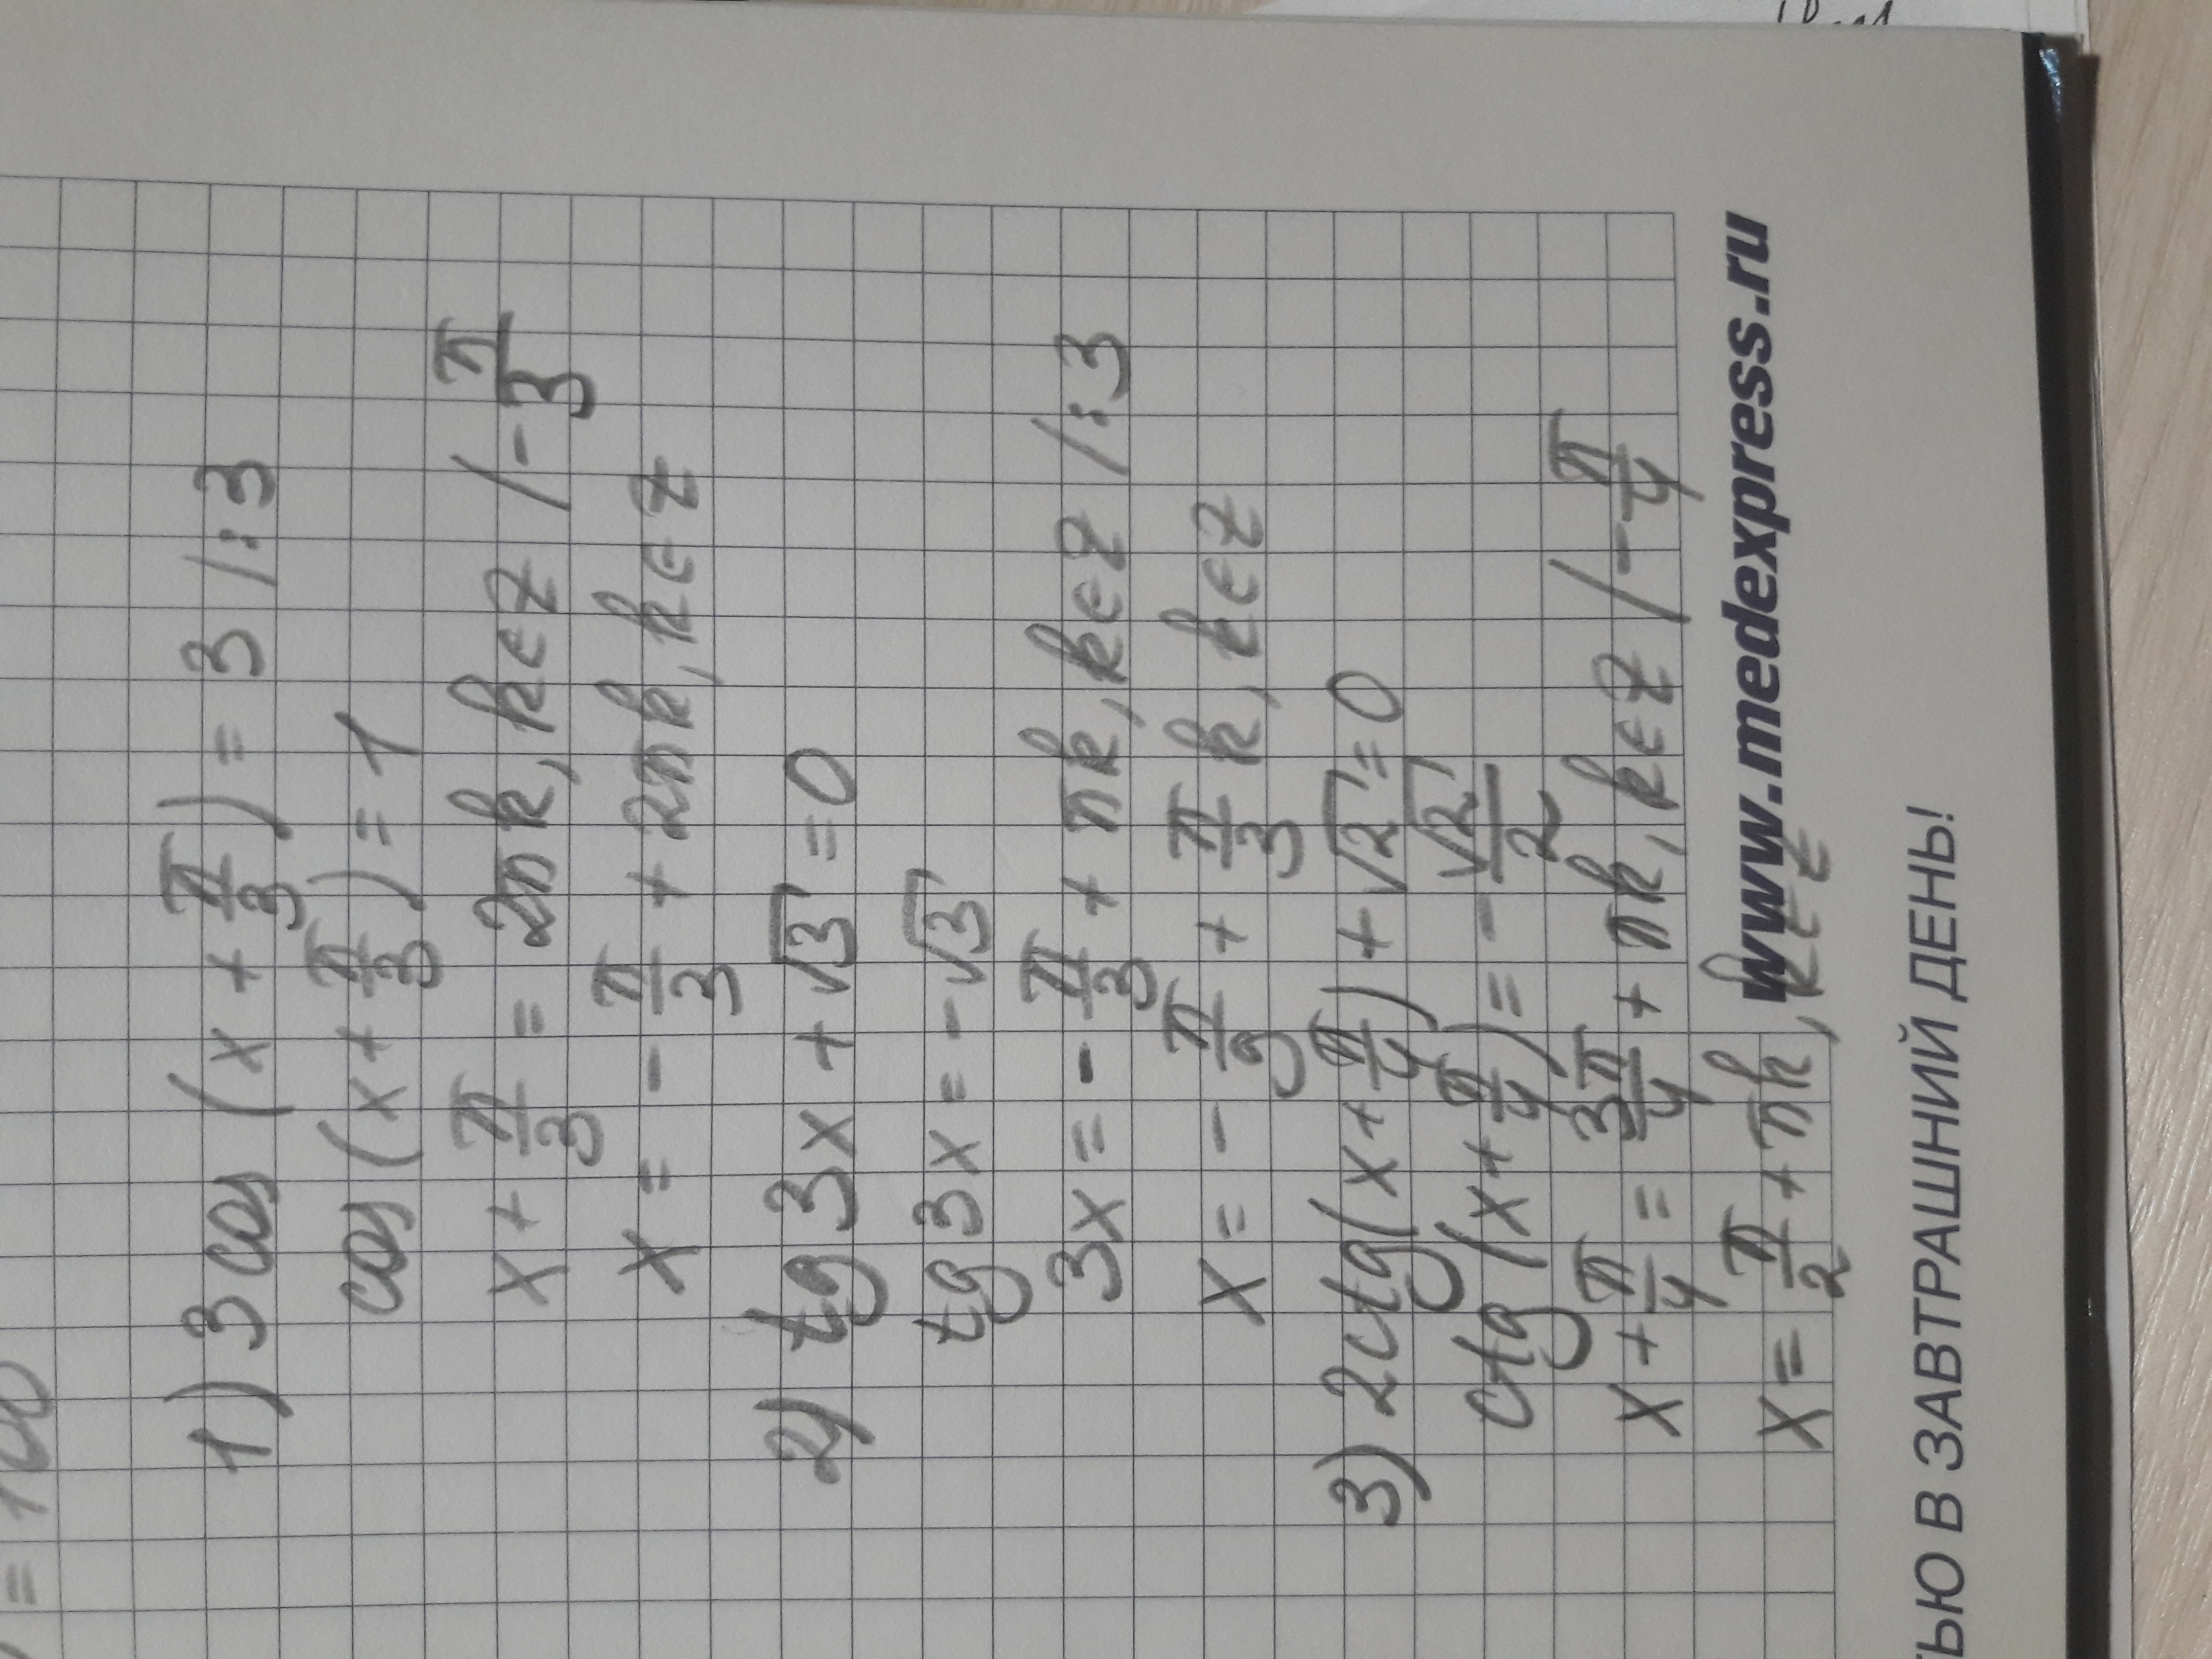 = 100
1) 3 cos (x + π/3) = 3 /:3
cos (x + π/3) = 1
x + π/3 = 2πk, k∈Z /-π/3
x = - π/3 + 2πk, k∈Z
2) tg 3x + √3 = 0
tg 3x = -√3
3x = - π/3 + πk, k∈Z /:3
x = - π/9 + π/3 k, k∈Z
3) 2ctg(x + π/4) + √2 = 0
ctg (x + π/4) = - √2/2
x + π/4 = 3π/4 + πk, k∈Z /-π/4
x = π/2 + πk, k∈Z
www.medexpress.ru
ТЬЮ В ЗАВТРАШНИЙ ДЕНЬ!